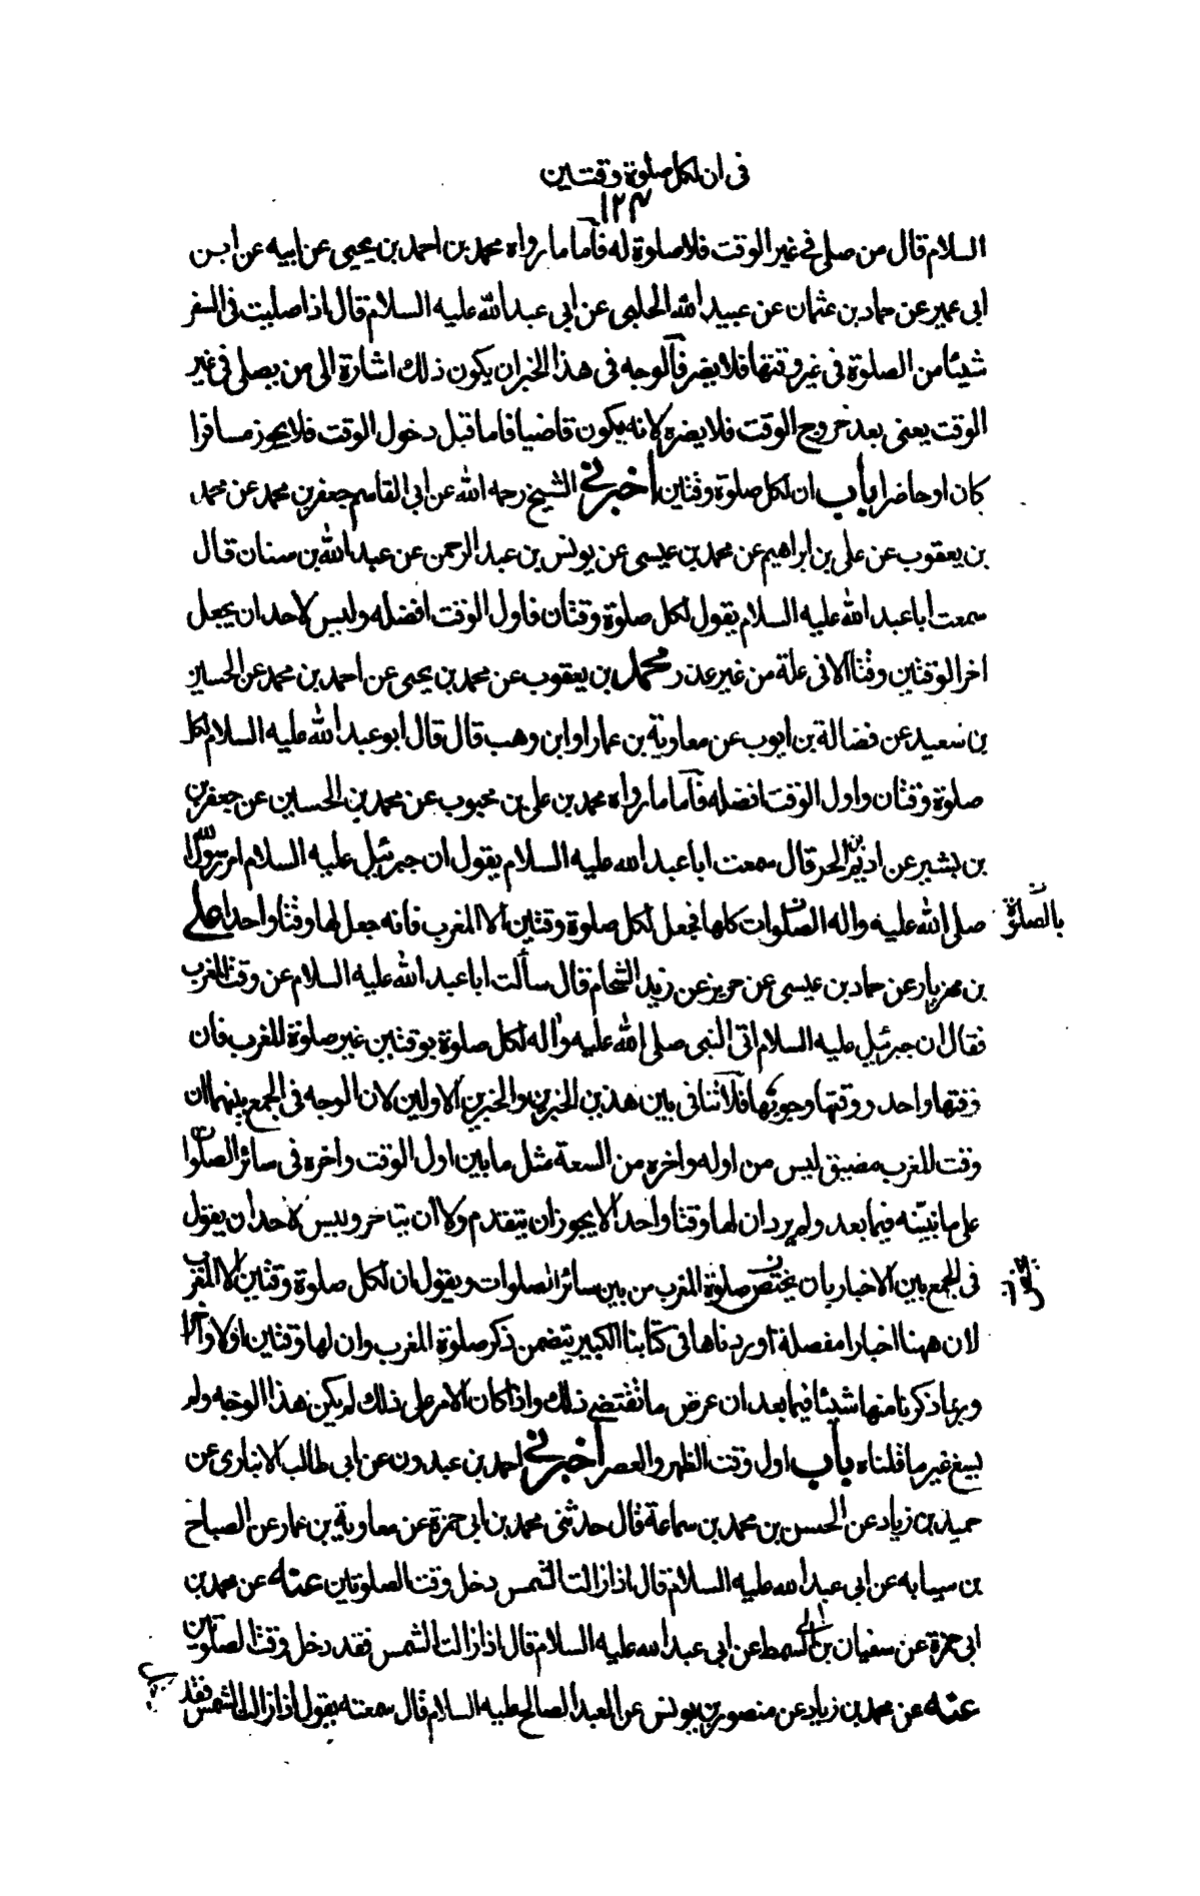 فى ان لكل صلوة وقتين
١٢٤
السلام قال من صلى فى غير الوقت فلا صلوة له فأما ما رواه محمد بن احمد بن يحيى عن ابيه عن ابن
ابى عمير عن حماد بن عثمان عن عبيد الله الحلبى عن ابى عبد الله عليه السلام قال اذا صليت فى السفر
شيئا من الصلوة فى غير وقتها فلا يضر فآلوجه فى هذا الخبر ان يكون ذلك اشارة الى من يصلى فى غير
الوقت يعنى بعد خروج الوقت فلا يضره لانه يكون قاضيا فاما قبل دخول الوقت فلا يجوز مسافرا
كان او حاضرا باب ان لكل صلوة وقتين أخبرنى الشيخ رحمه الله عن ابى القاسم جعفر بن محمد عن محمد
بن يعقوب عن على بن ابراهيم عن محمد بن عيسى عن يونس بن عبد الرحمن عن عبد الله بن سنان قال
سمعت ابا عبد الله عليه السلام يقول لكل صلوة وقتان فاول الوقت افضله وليس لاحد ان يجعل
اخر الوقتين وقتا الا فى علة من غير عذر محمد بن يعقوب عن محمد بن يحيى عن احمد بن محمد عن الحسين
بن سعيد عن فضالة بن ايوب عن معاوية بن عمار او ابن وهب قال قال ابو عبد الله عليه السلام لكل
صلوة وقتان واول الوقت افضله فأما ما رواه محمد بن على بن محبوب عن محمد بن الحسين عن جعفر بن
بن بشير عن اديم بن الحر قال سمعت ابا عبد الله عليه السلام يقول ان جبرئيل عليه السلام امر رسول الله
صلى الله عليه واله الصلوات كلها فجعل لكل صلوة وقتين الا المغرب فانه جعل لها وقتا واحدا على
بالصلوة
بن مهزيار عن حماد بن عيسى عن حريز عن زيد الشحام قال سألت ابا عبد الله عليه السلام عن وقت المغرب
فقال ان جبرئيل عليه السلام اتى النبى صلى الله عليه وآله لكل صلوة بوقتين غير صلوة المغرب فان
وقتها واحد ووقتها وجوبها فلا تنافى بين هذين الخبرين والخبرين الاولين لان الوجه فى الجمع بينهما ان
وقت المغرب مضيق ليس من اوله واخره من السعة مثل ما بين اول الوقت واخره فى سائر الصلوات
على ما نبينه فيما بعد ولم يرد ان لها وقتا واحدا لا يجوز ان يتقدم ولا ان يتاخر وليس لاحد ان يقول
فى الجمع بين الاخبار بان يختص صلوة المغرب من بين سائر الصلوات ويقول ان لكل صلوة وقتين الا المغرب
لان ههنا اخبارا مفصلة اوردناها فى كتابنا الكبير يتضمن ذكر صلوة المغرب وان لها وقتين اولا وآخرا
وربما ذكرنا منها شيئا فيما بعد ان عرض ما تقتضى ذلك واذا كان الامر على ذلك لم يكن هذا الوجه ولم
يسغ غير ما قلناه باب اول وقت الظهر والعصر أخبرنى احمد بن عبدون عن ابى طالب الانبارى عن
حميد بن زياد عن الحسن بن محمد بن سماعة قال حدثنى محمد بن ابى حمزة عن معاوية بن عمار عن الصباح
بن سيابه عن ابى عبد الله عليه السلام قال اذا زالت الشمس دخل وقت الصلوتين عنه عن محمد بن
ابى حمزة عن سفيان بن السمط عن ابى عبد الله عليه السلام قال اذا زالت الشمس فقد دخل وقت الصلوتين
عنه عن محمد بن زياد عن منصور بن يونس عن العبد الصالح عليه السلام قال سمعته يقول اذا زالت الشمس فقد